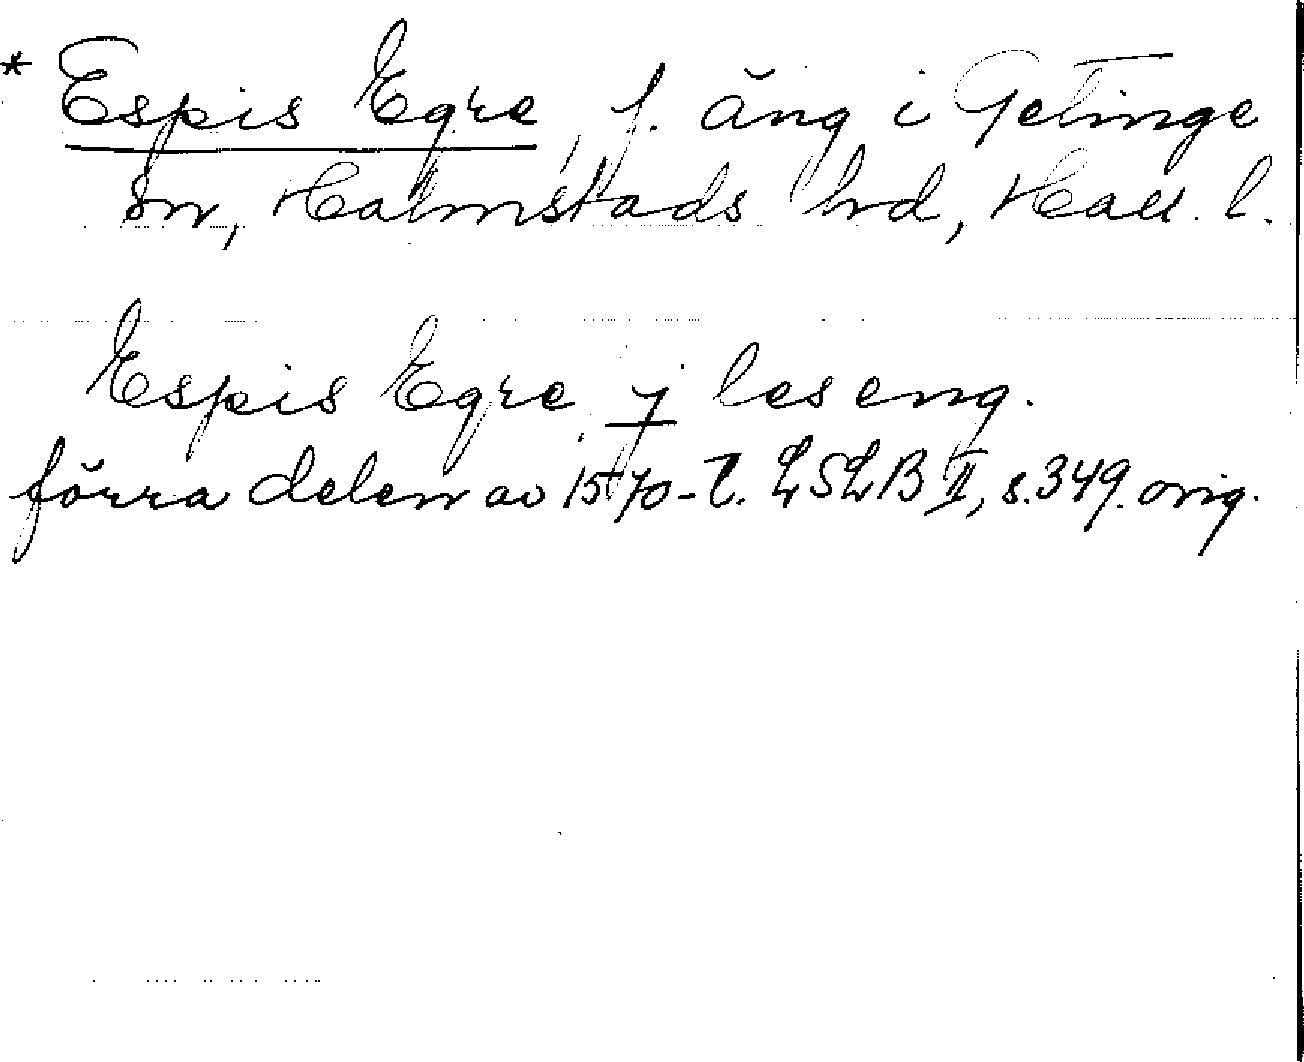 * Espis Egre, f. äng i Getinge
sn, Halmstads hd, Hall. l.
Espis Egre j les eng.
förra delen av 1570-t. LSLB II, s. 349. orig.